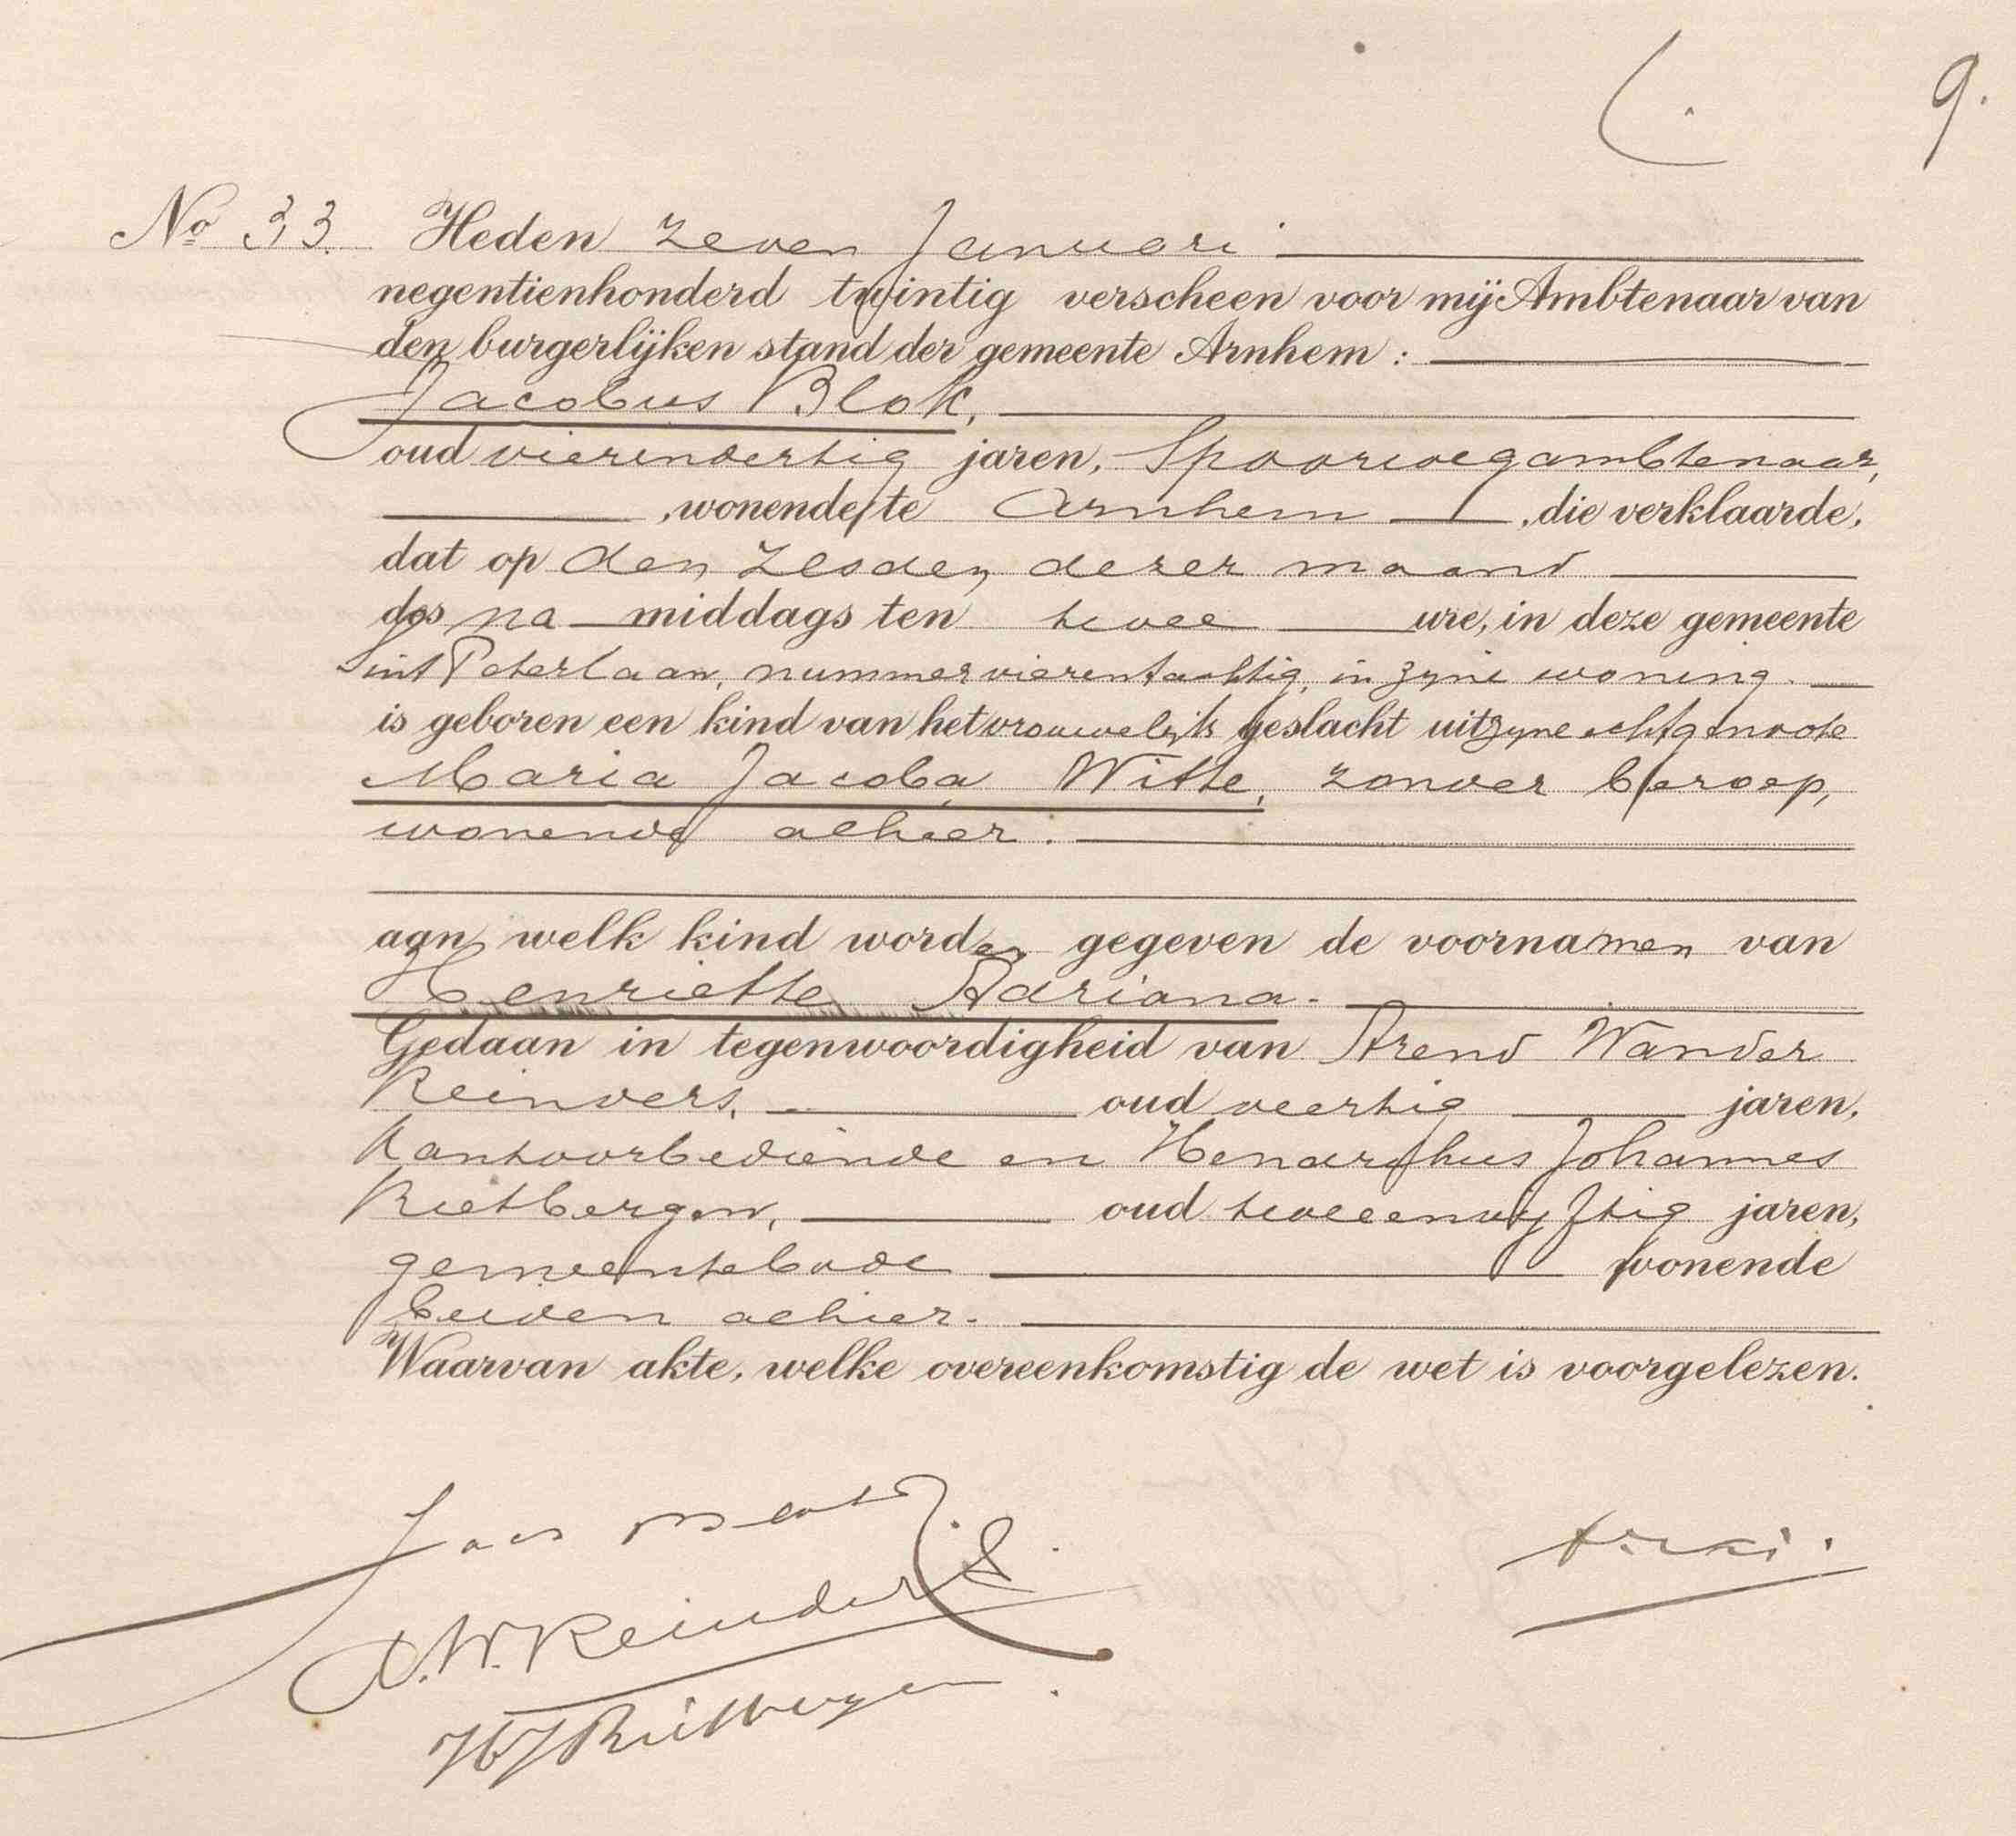 9.
No 33. Heden zeven Januari
negentienhonderd twintig verscheen voor mij Ambtenaar van
den burgerlijken stand der gemeente Arnhem:
Jacobus Blok,
oud vierendertig jaren, Spoorwegambtenaar,
, wonende te Arnhem, die verklaarde,
dat op den zesden dezer maand
des na middags ten twee ure, in deze gemeente
Sint Peterlaan, nummer vierentachtig, in zyne woning.
is geboren een kind van het vrouwelijk geslacht uit zyne echtgenoote
Maria Jacoba Witte, zonder beroep,
wonende alhier.
aan welk kind worden gegeven de voornamen van
Henriette Adriana.
Gedaan in tegenwoordigheid van Arend Wander
Reinders, oud veertig jaren,
kantoorbediende en Henderikus Johannes
Rietbergen, oud tweeenvyftig jaren,
gemeentebode wonende
beiden alhier.
Waarvan akte, welke overeenkomstig de wet is voorgelezen.
Jacs Blok
A.W. Reinders
HJ Rietbergen